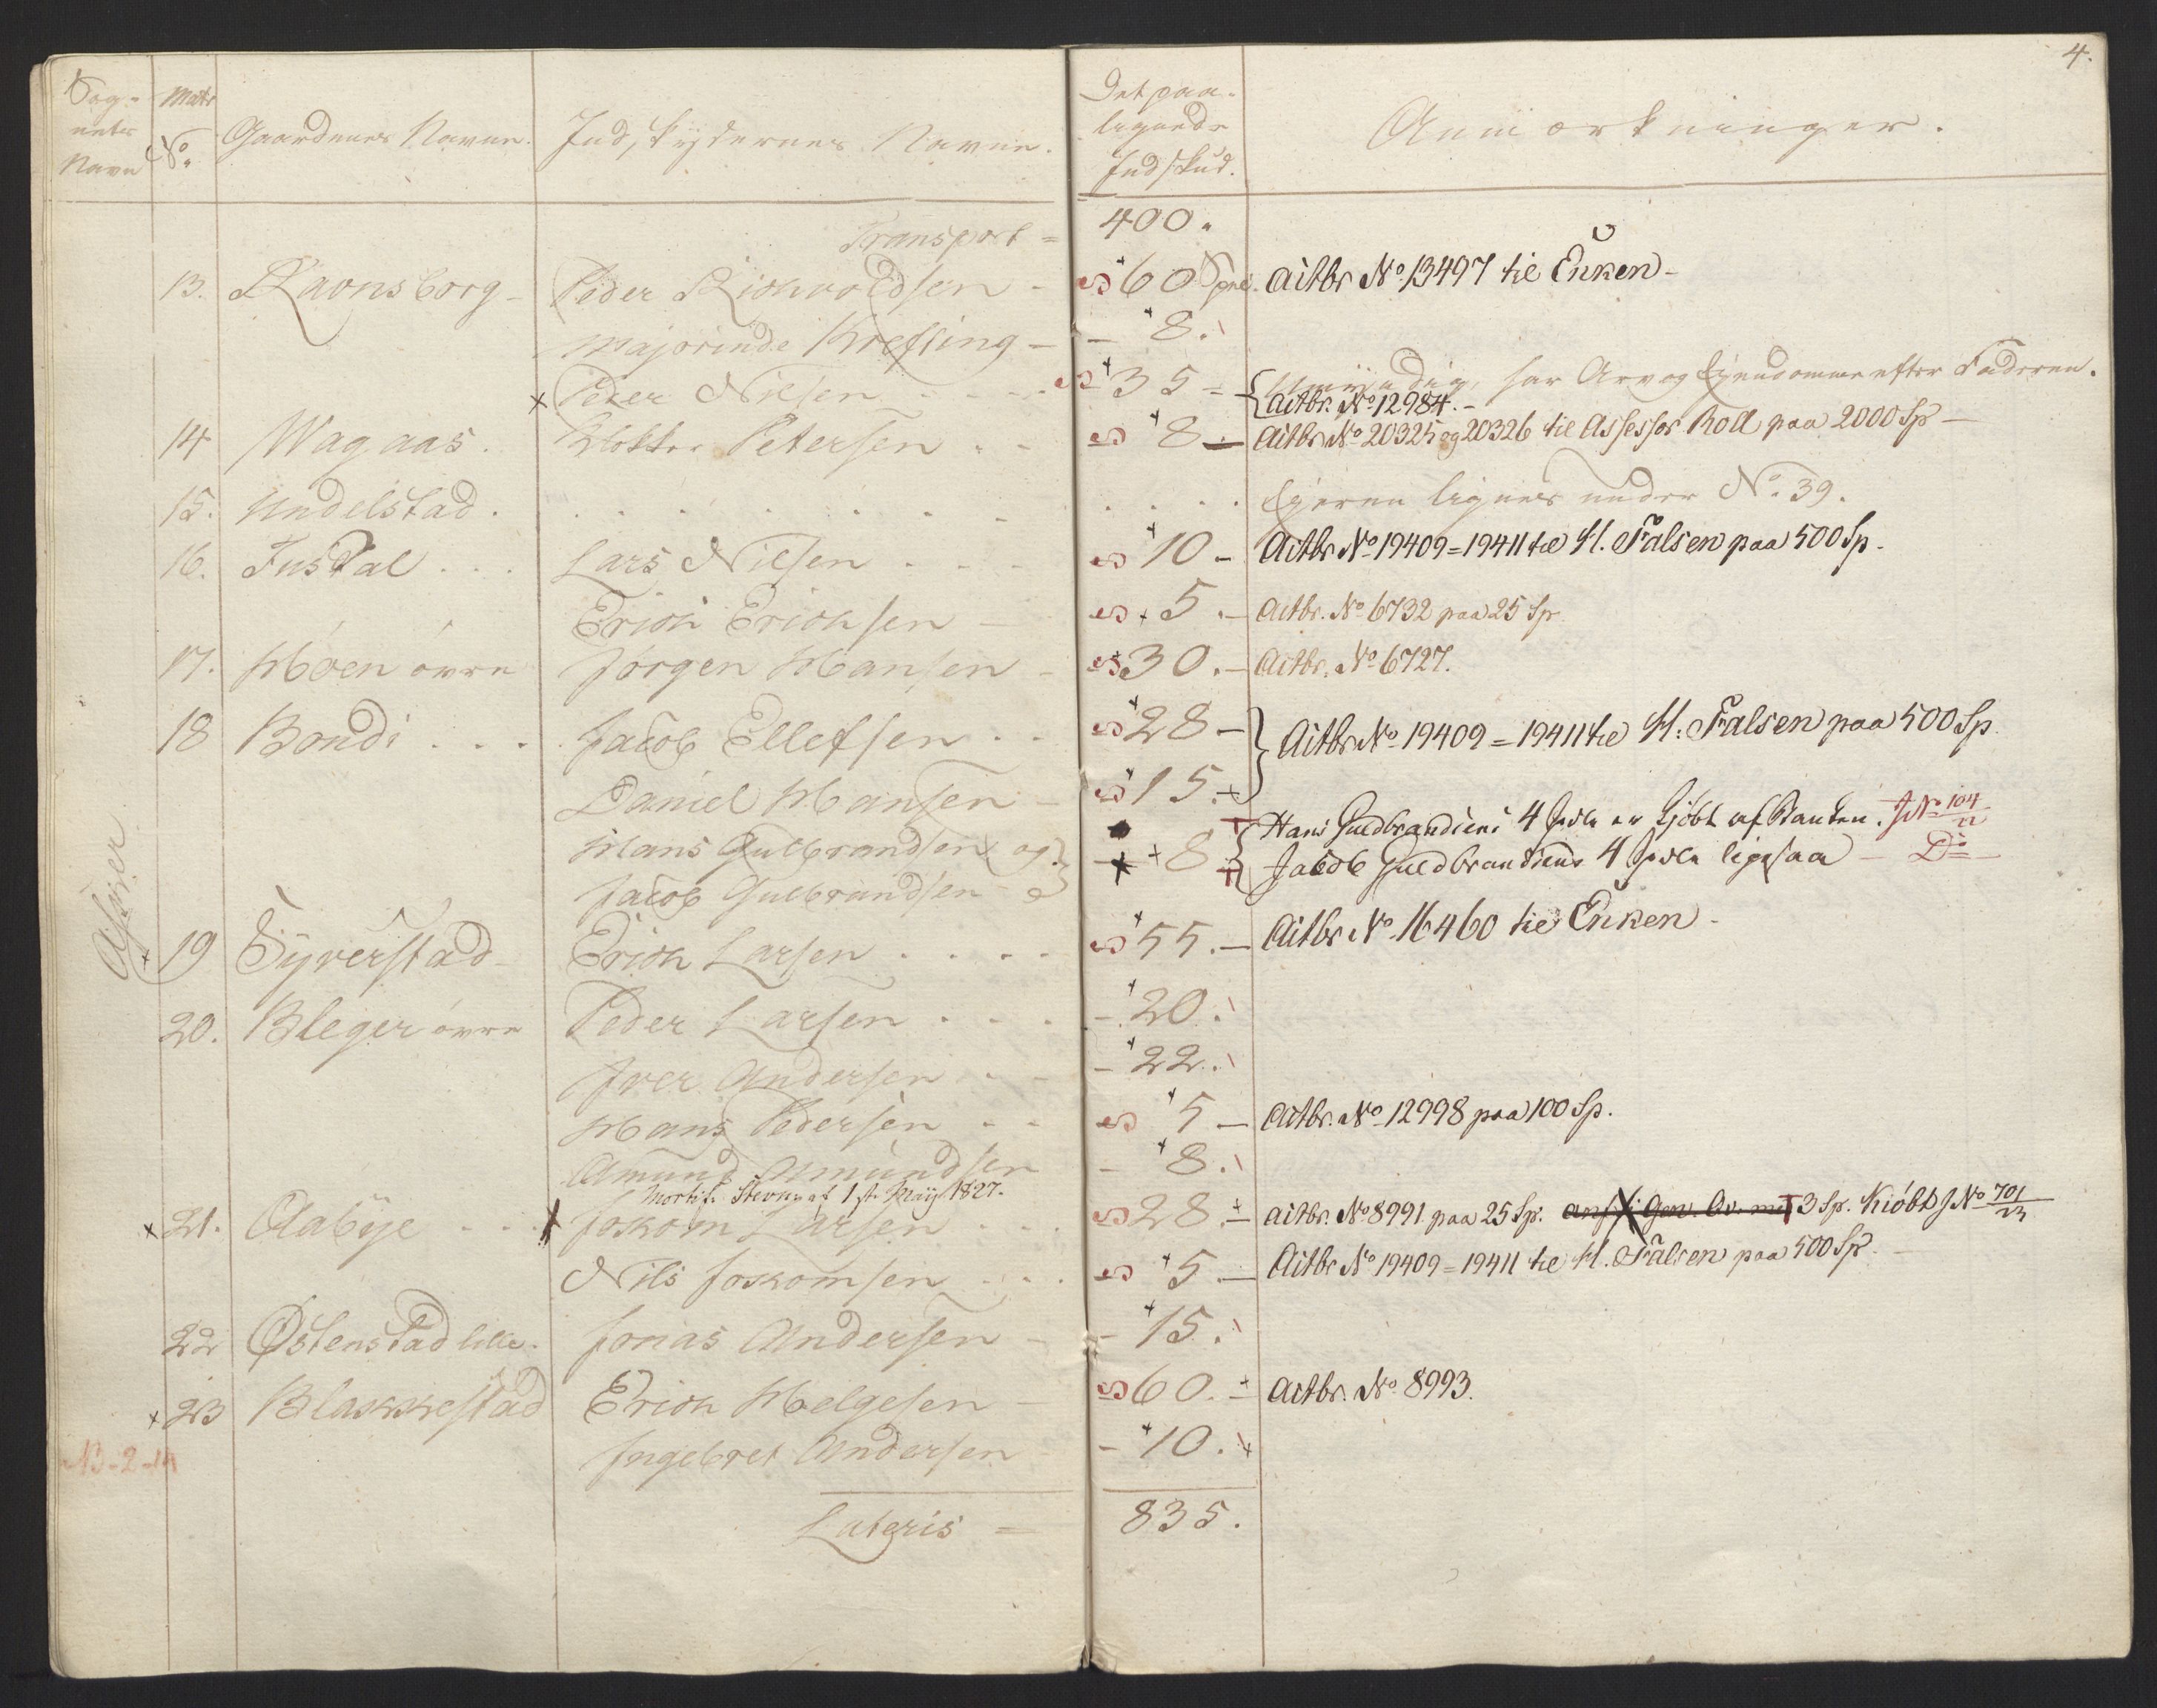 Sog- Matr Gaardenes Navne. Indskydernes Navne. Det paa- Anmærkninger. 4.
nets No lignede
Navn Indskud.
Transport = 400.
13. Ravnsborg - Peder Richvoldsen - 60 Spd. Actbr No 13497 til Enken -
Majorinde Krefting - 8.
x Peder Nielsen - 35 - Umÿndig, har Arv og Ejendomme efter Faderen.
Actbr. No 12984. -
14 Wagaas. Petersen - 8 - Actbr No 20325 og 20326 til Assessor Roll paa 2000 Sp -
15. Undelstad. Ejeren lignes under No. 39.
16. Fusdal ... Lars Nilsen ... 10 - Actbr No 19409 = 19411 til H. Falsen paa 500 Sp.
Erich Erichsen - 5. - Actbr. No 6732 paa 25 Sp
17. Hoen övre Jörgen Hansen - 30. - Actbr. No 6727.
18 Bondi ... Jacob Ellefsen .. 28 - Actbr No 19409 = 19411 til H. Falsen paa 500 Sp.
Daniel Hansen - 15.
Hans Gulbrandsen og 8 Hans Guldbrandsens 4 Spdlr er kjöbt af Banken. J No 104/22
Jacob Gulbrandsen Jacob Guldbrandsens 4 Spdlr ligesaa - Do -
Asker
19 Syverstad - Erich Larsen .... 55. - Actbr No 16460 til Enken -
20. Bleger övre Peder Larsen ... - 20.
Iver Andersen - 22.
Hans Pedersen .. 5 - Actbr. No 12998 paa 100 Sp.
Amund Amundsen - 8.
Mortif. Stevng af 1ste Maij 1827.
x 21. Olabÿe ... x Joskom Larsen ... 28. Actbr. No 8991 paa 25 Sp. 3 Sp. Kiöbt J No 701/23
Nils Joskomsen ... 5. - Actbr No 19409 = 19411 til H. Falsen paa 500 Sp.
22 Östenstad lille. Jonas Andersen - 15.
x 23 Blakkestad Erich Helgesen - 60. Actbr. No 8993.
Ingebret Andersen - 10.
Lateris = 835.